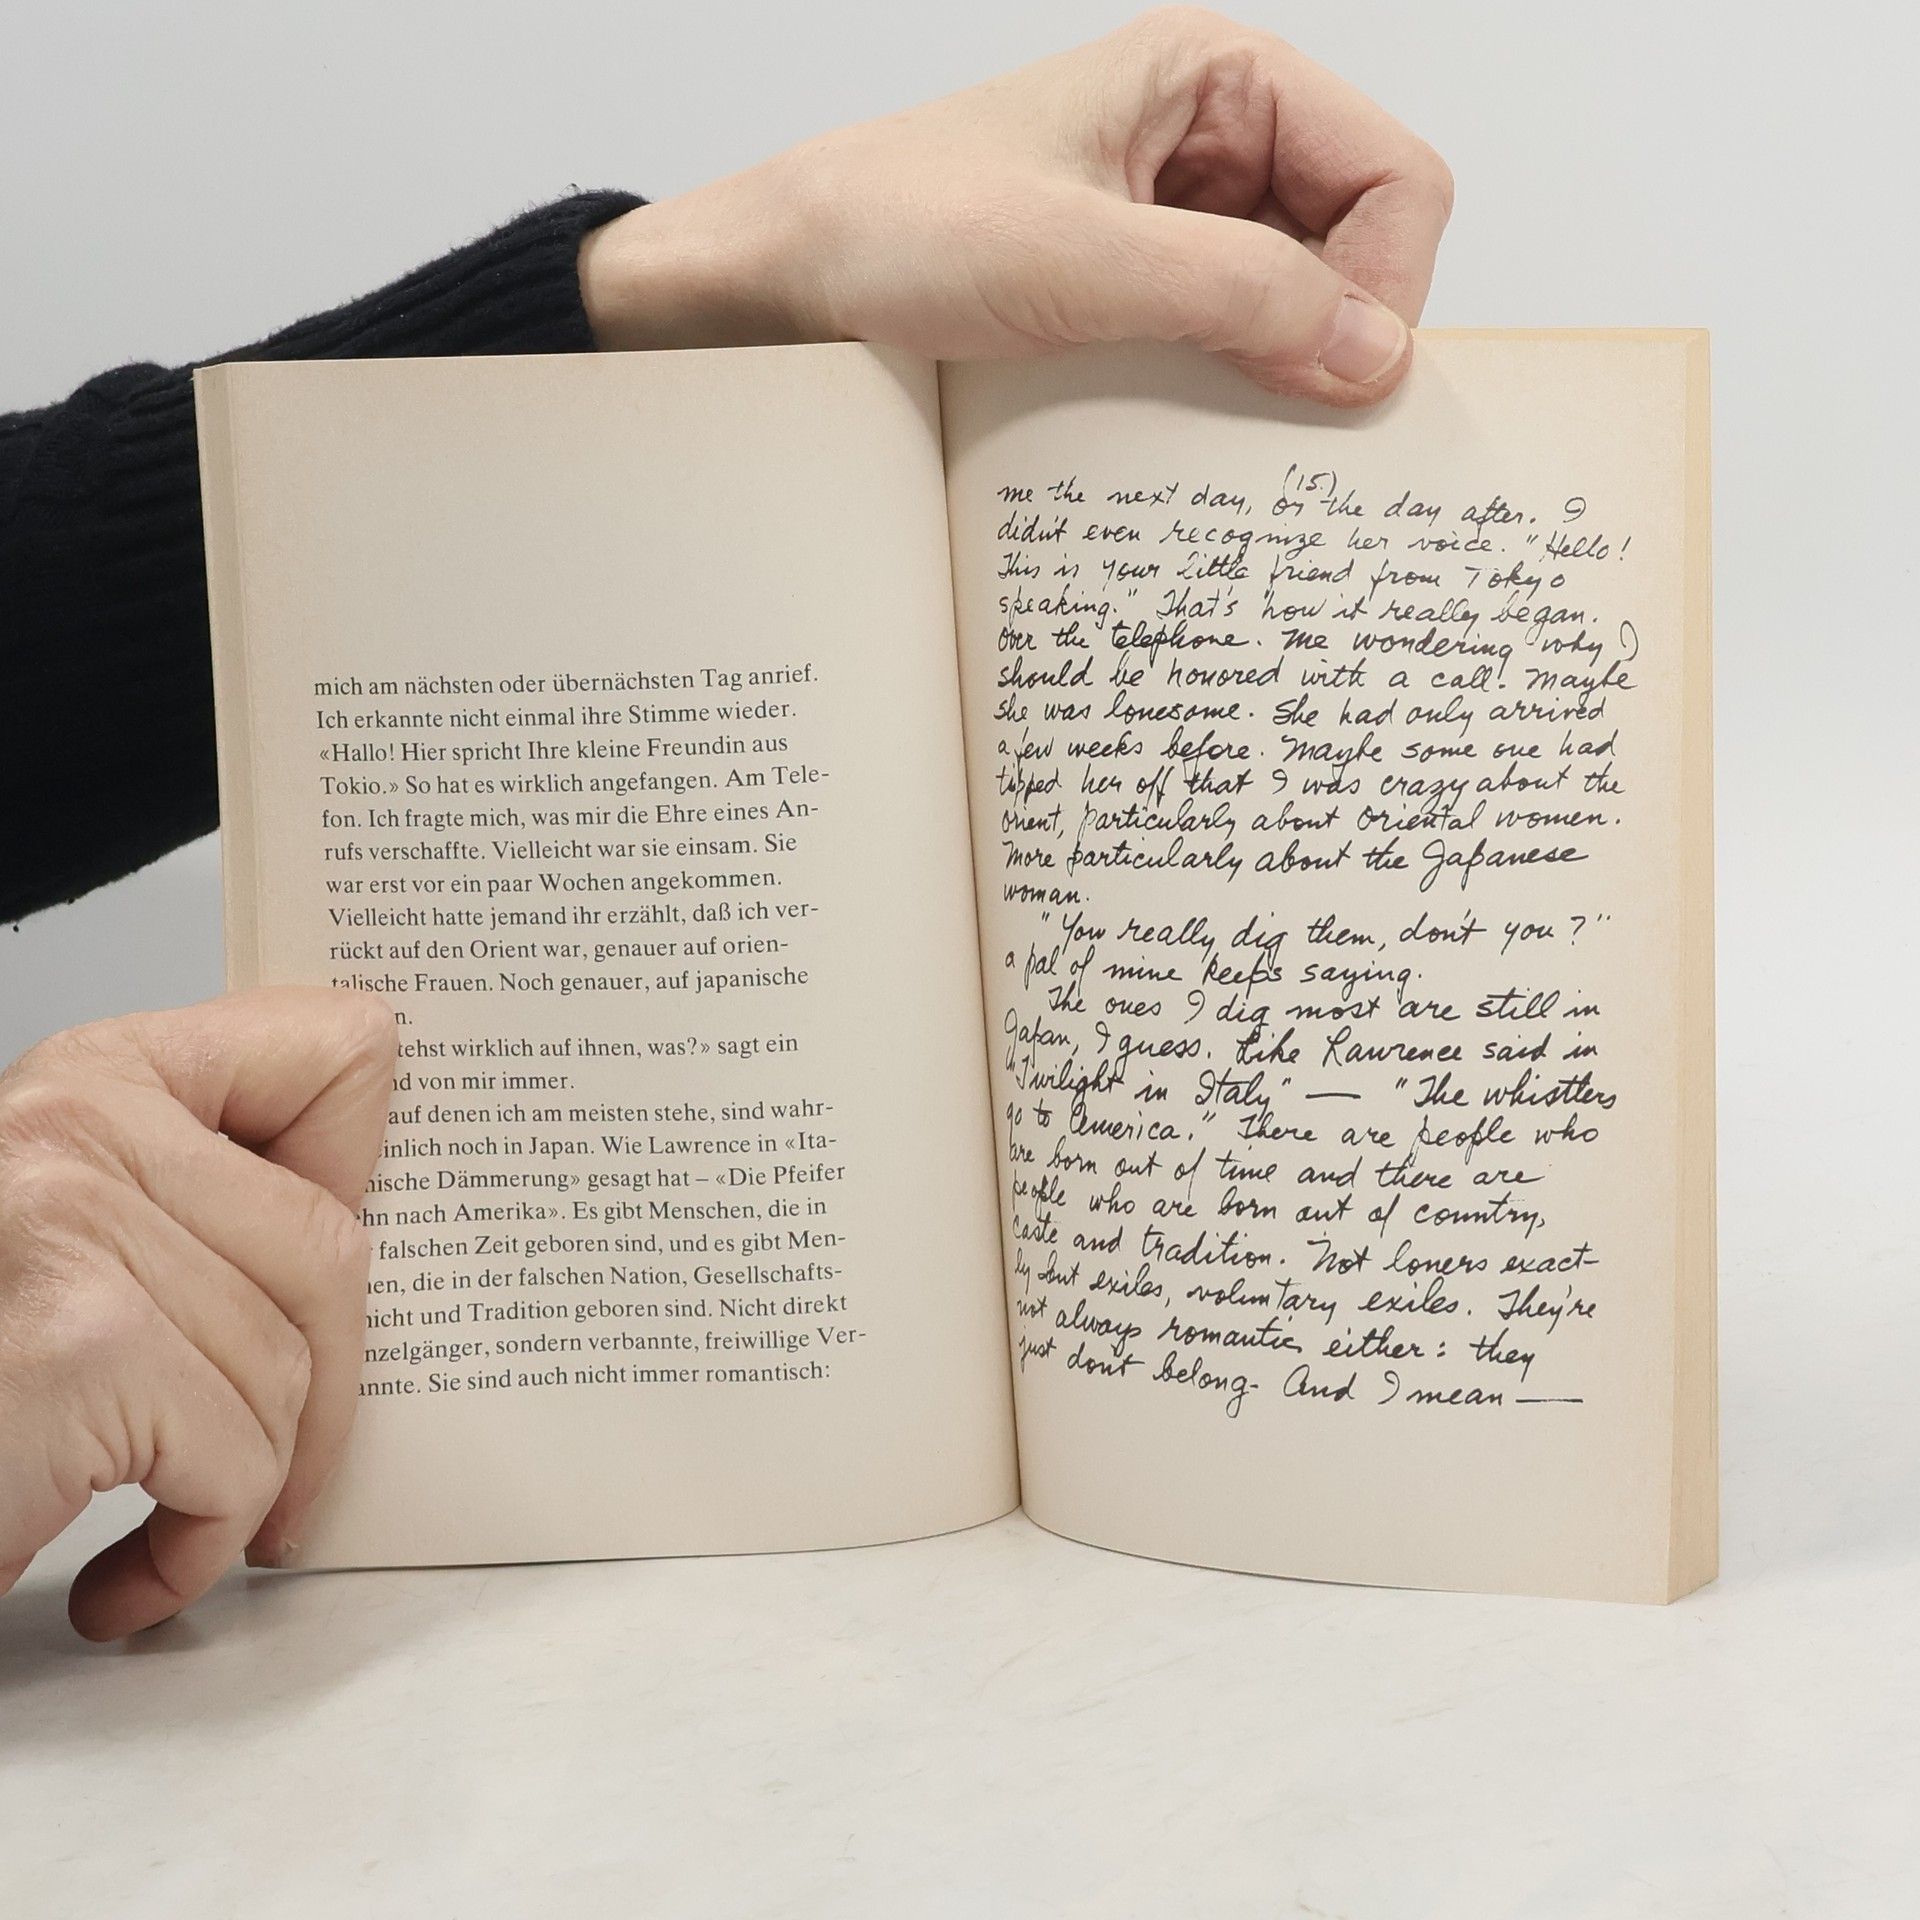 mich am nächsten oder übernächsten Tag anrief.
Ich erkannte nicht einmal ihre Stimme wieder.
«Hallo! Hier spricht Ihre kleine Freundin aus
Tokio.» So hat es wirklich angefangen. Am Tele-
fon. Ich fragte mich, was mir die Ehre eines An-
rufs verschaffte. Vielleicht war sie einsam. Sie
war erst vor ein paar Wochen angekommen.
Vielleicht hatte jemand ihr erzählt, daß ich ver-
rückt auf den Orient war, genauer auf orien-
talische Frauen. Noch genauer, auf japanische
n.
tehst wirklich auf ihnen, was?» sagt ein
nd von mir immer.
auf denen ich am meisten stehe, sind wahr-
inlich noch in Japan. Wie Lawrence in «Ita-
nische Dämmerung» gesagt hat – «Die Pfeifer
hn nach Amerika». Es gibt Menschen, die in
falschen Zeit geboren sind, und es gibt Men-
en, die in der falschen Nation, Gesellschafts-
hicht und Tradition geboren sind. Nicht direkt
nzelgänger, sondern verbannte, freiwillige Ver-
annte. Sie sind auch nicht immer romantisch:
(15.)
me the next day, or the day after. I
didn't even recognize her voice. "Hello!
This is your little friend from Tokyo
speaking." That's how it really began.
Over the telephone. Me wondering why I
should be honored with a call. Maybe
she was lonesome. She had only arrived
a few weeks before. Maybe some one had
tipped her off that I was crazy about the
orient, particularly about Oriental women.
More particularly about the Japanese
woman.
"You really dig them, don't you?"
a pal of mine keeps saying.
The ones I dig most are still in
Japan, I guess. Like Lawrence said in
"Twilight in Italy" — "The whistlers
go to America." There are people who
are born out of time and there are
people who are born out of country,
caste and tradition. Not loners exact-
ly but exiles, voluntary exiles. They're
not always romantic either: they
just don't belong. And I mean —